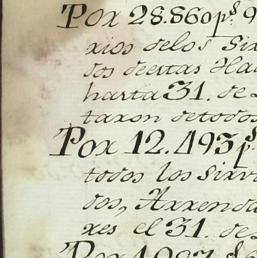 Por 28.860 p.s 9
rios delos Sir
dos deestas Ha
harta 31. de
taron detodos
Por 12.493 p.s
todos los Sirv
dos, Arrenda
res el 31. de
Por 1.987. p